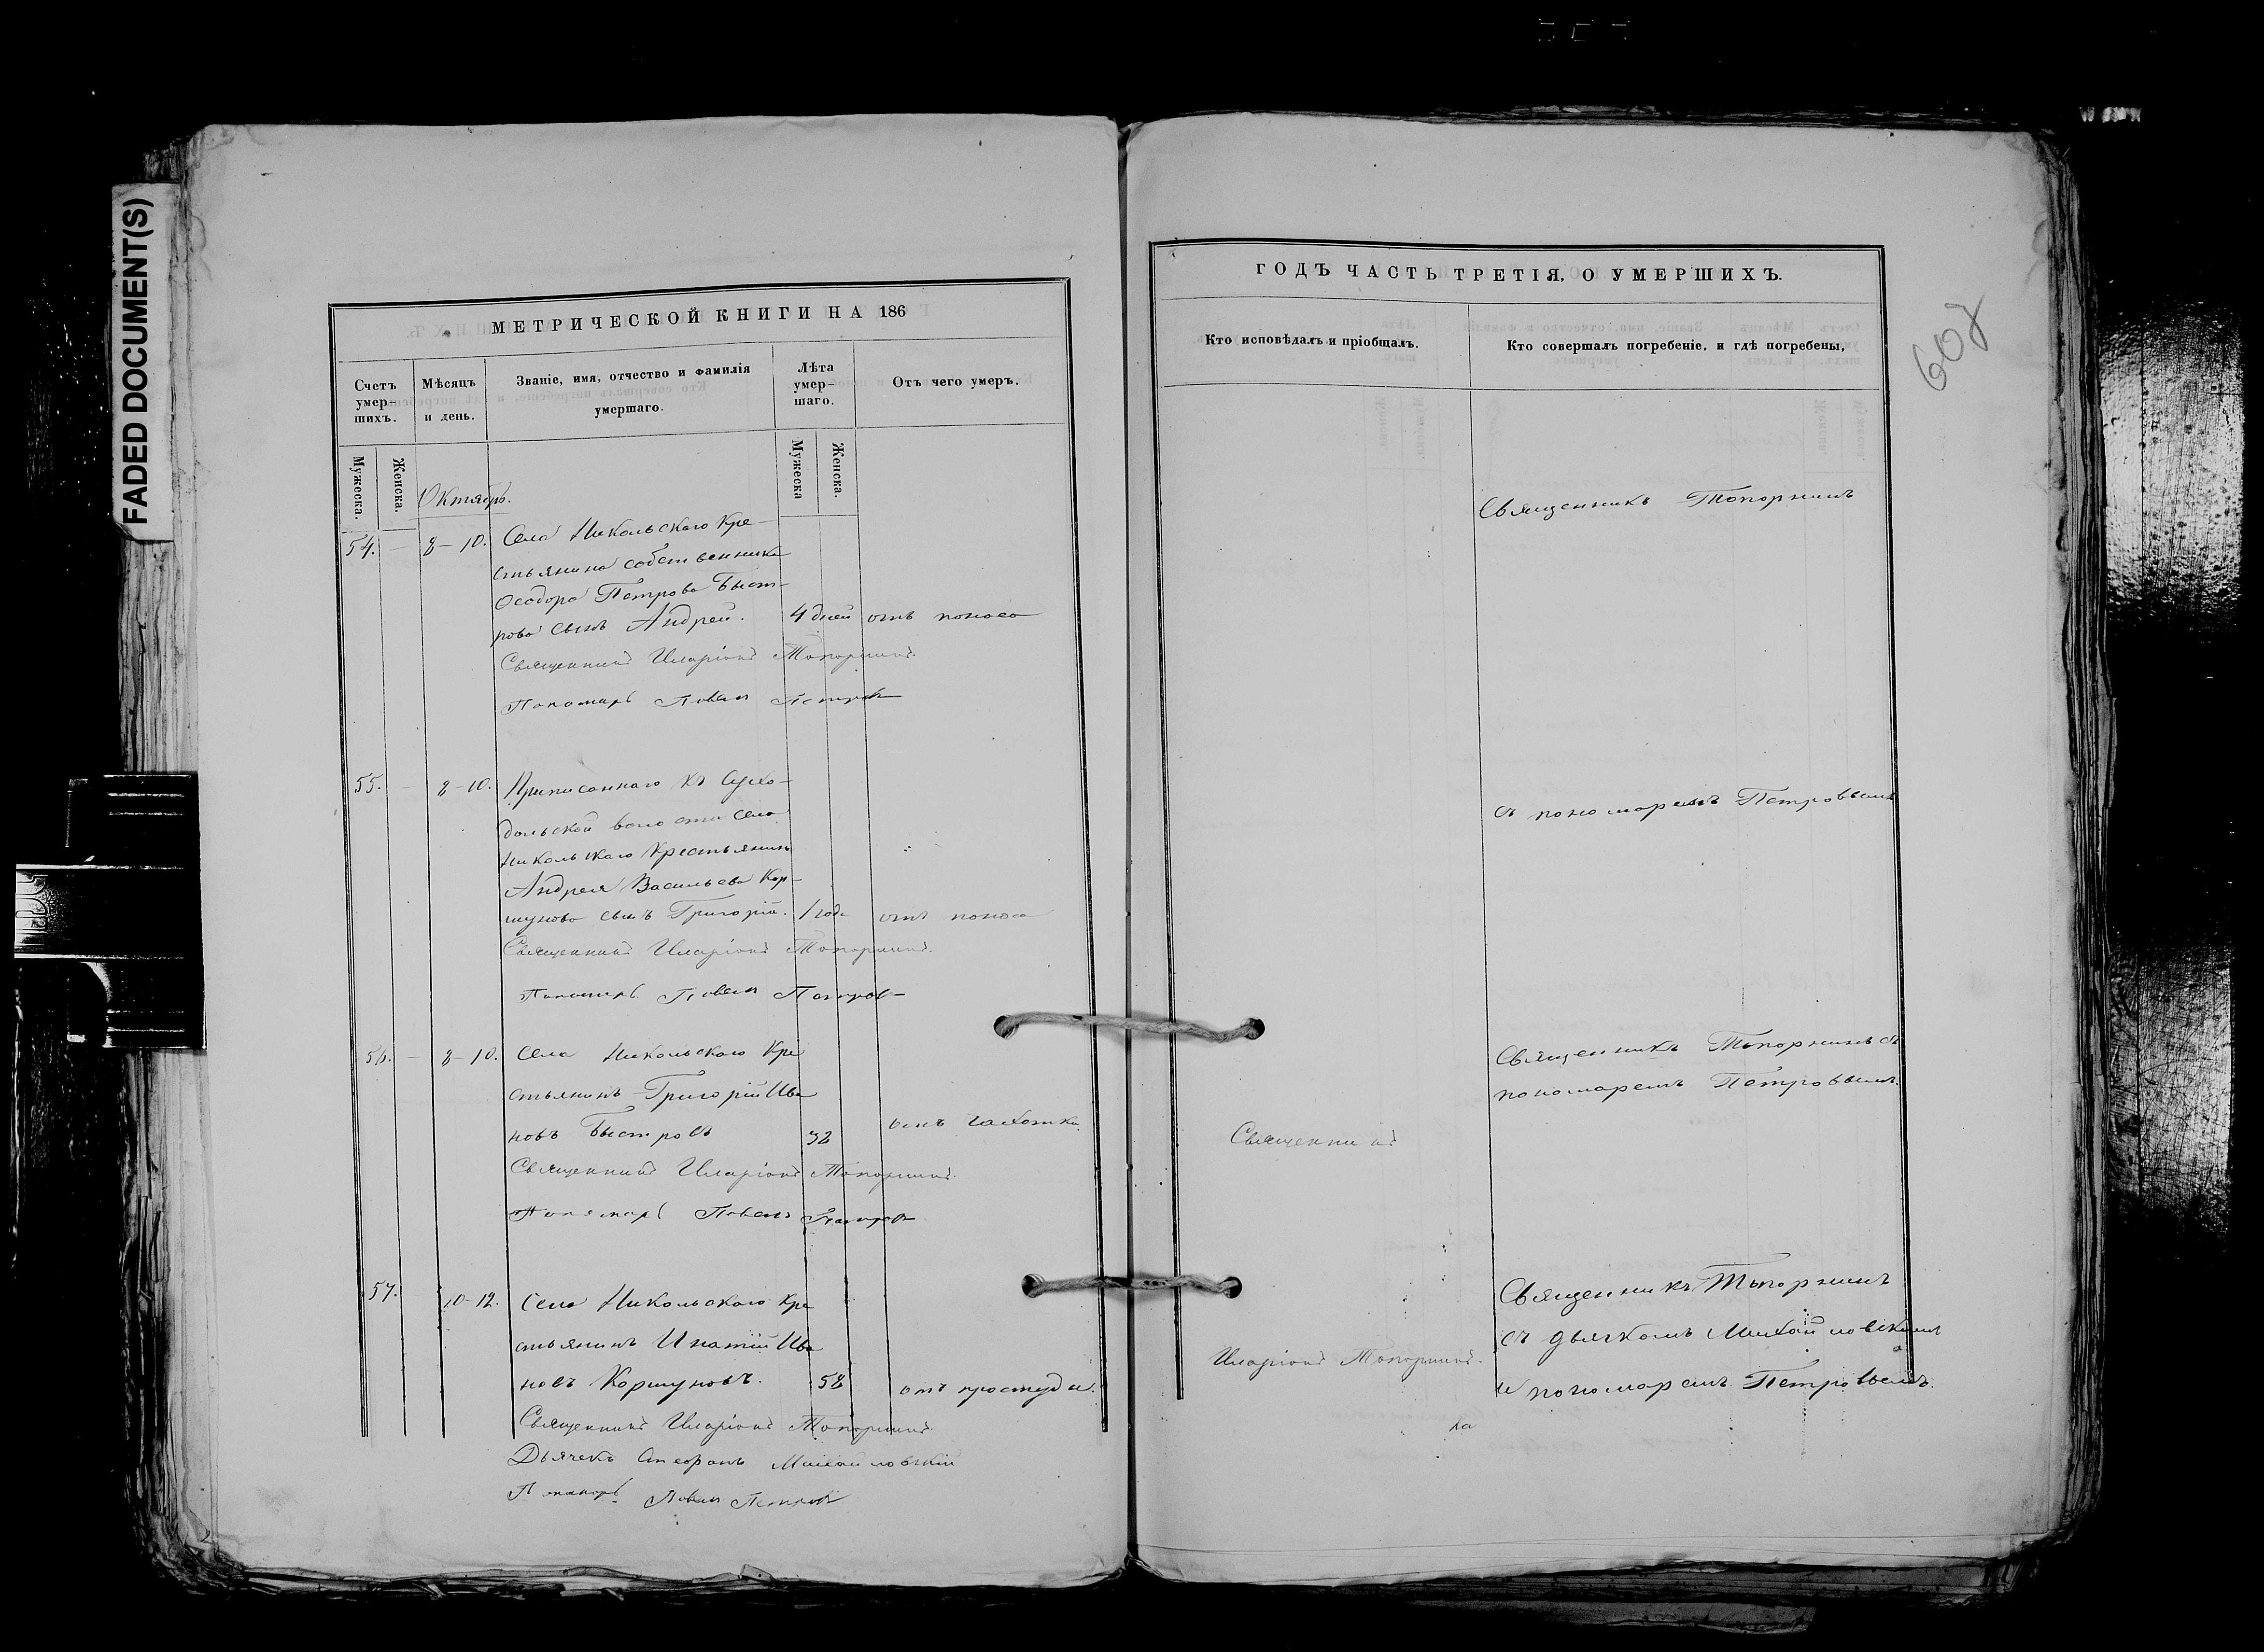 FADED DOCUMENT(S)
МЕТРИЧЕСКОЙ КНИГИ НА 186
Счетъ умер-шихъ.
Мѣсяцъ и день.
Званіе, имя, отчество и фамилія умершаго.
Лѣта умер-шаго.
Отъ чего умеръ.
Мужеска.
Женска.
Мужеска
Женска.
Октябрь.
54. — 8–10. Села Никольскаго Кре-
стьянина собственника
Ѳеодора Петрова Быст-
рова сынъ Андрей. 4 дней отъ поноса
Священникъ Иларіонъ Топорнинъ.
Пономарь Павелъ Петровъ
55. — 8–10. Приписаннаго къ Сухо-
дольской волости села
Никольскаго Крестьянин
Андрея Васильева Кор-
шунова сынъ Григорій. 1 года отъ поноса
Священникъ Иларіонъ Топорнинъ.
Пономарь Павелъ Петровъ
56. — 8–10. Села Никольскаго Кре
стьянинъ Григорій Ива
новъ Быстровъ 32 отъ чахотки.
Священникъ Иларіонъ Топорнинъ.
Пономарь Павелъ Петровъ
57. — 10–12. Села Никольскаго Кре
стьянинъ Игнатій Ива
новъ Коршуновъ. 58 отъ простуды.
Священникъ Иларіонъ Топорнинъ.
Дьячекъ Михайловскій
Пономарь Павелъ Петровъ
ГОДЪ ЧАСТЬ ТРЕТІЯ, О УМЕРШИХЪ.
608
Кто исповѣдалъ и пріобщалъ.
Кто совершалъ погребеніе, и гдѣ погребены,
Священникъ Топорнинъ
съ пономаремъ Петровымъ
Священникъ Топорнинъ съ
пономаремъ Петровымъ.
Священникъ
Священникъ Топорнинъ
съ дьячкомъ Михайловскимъ
Иларіонъ Топорнинъ.
и пономаремъ Петровымъ.